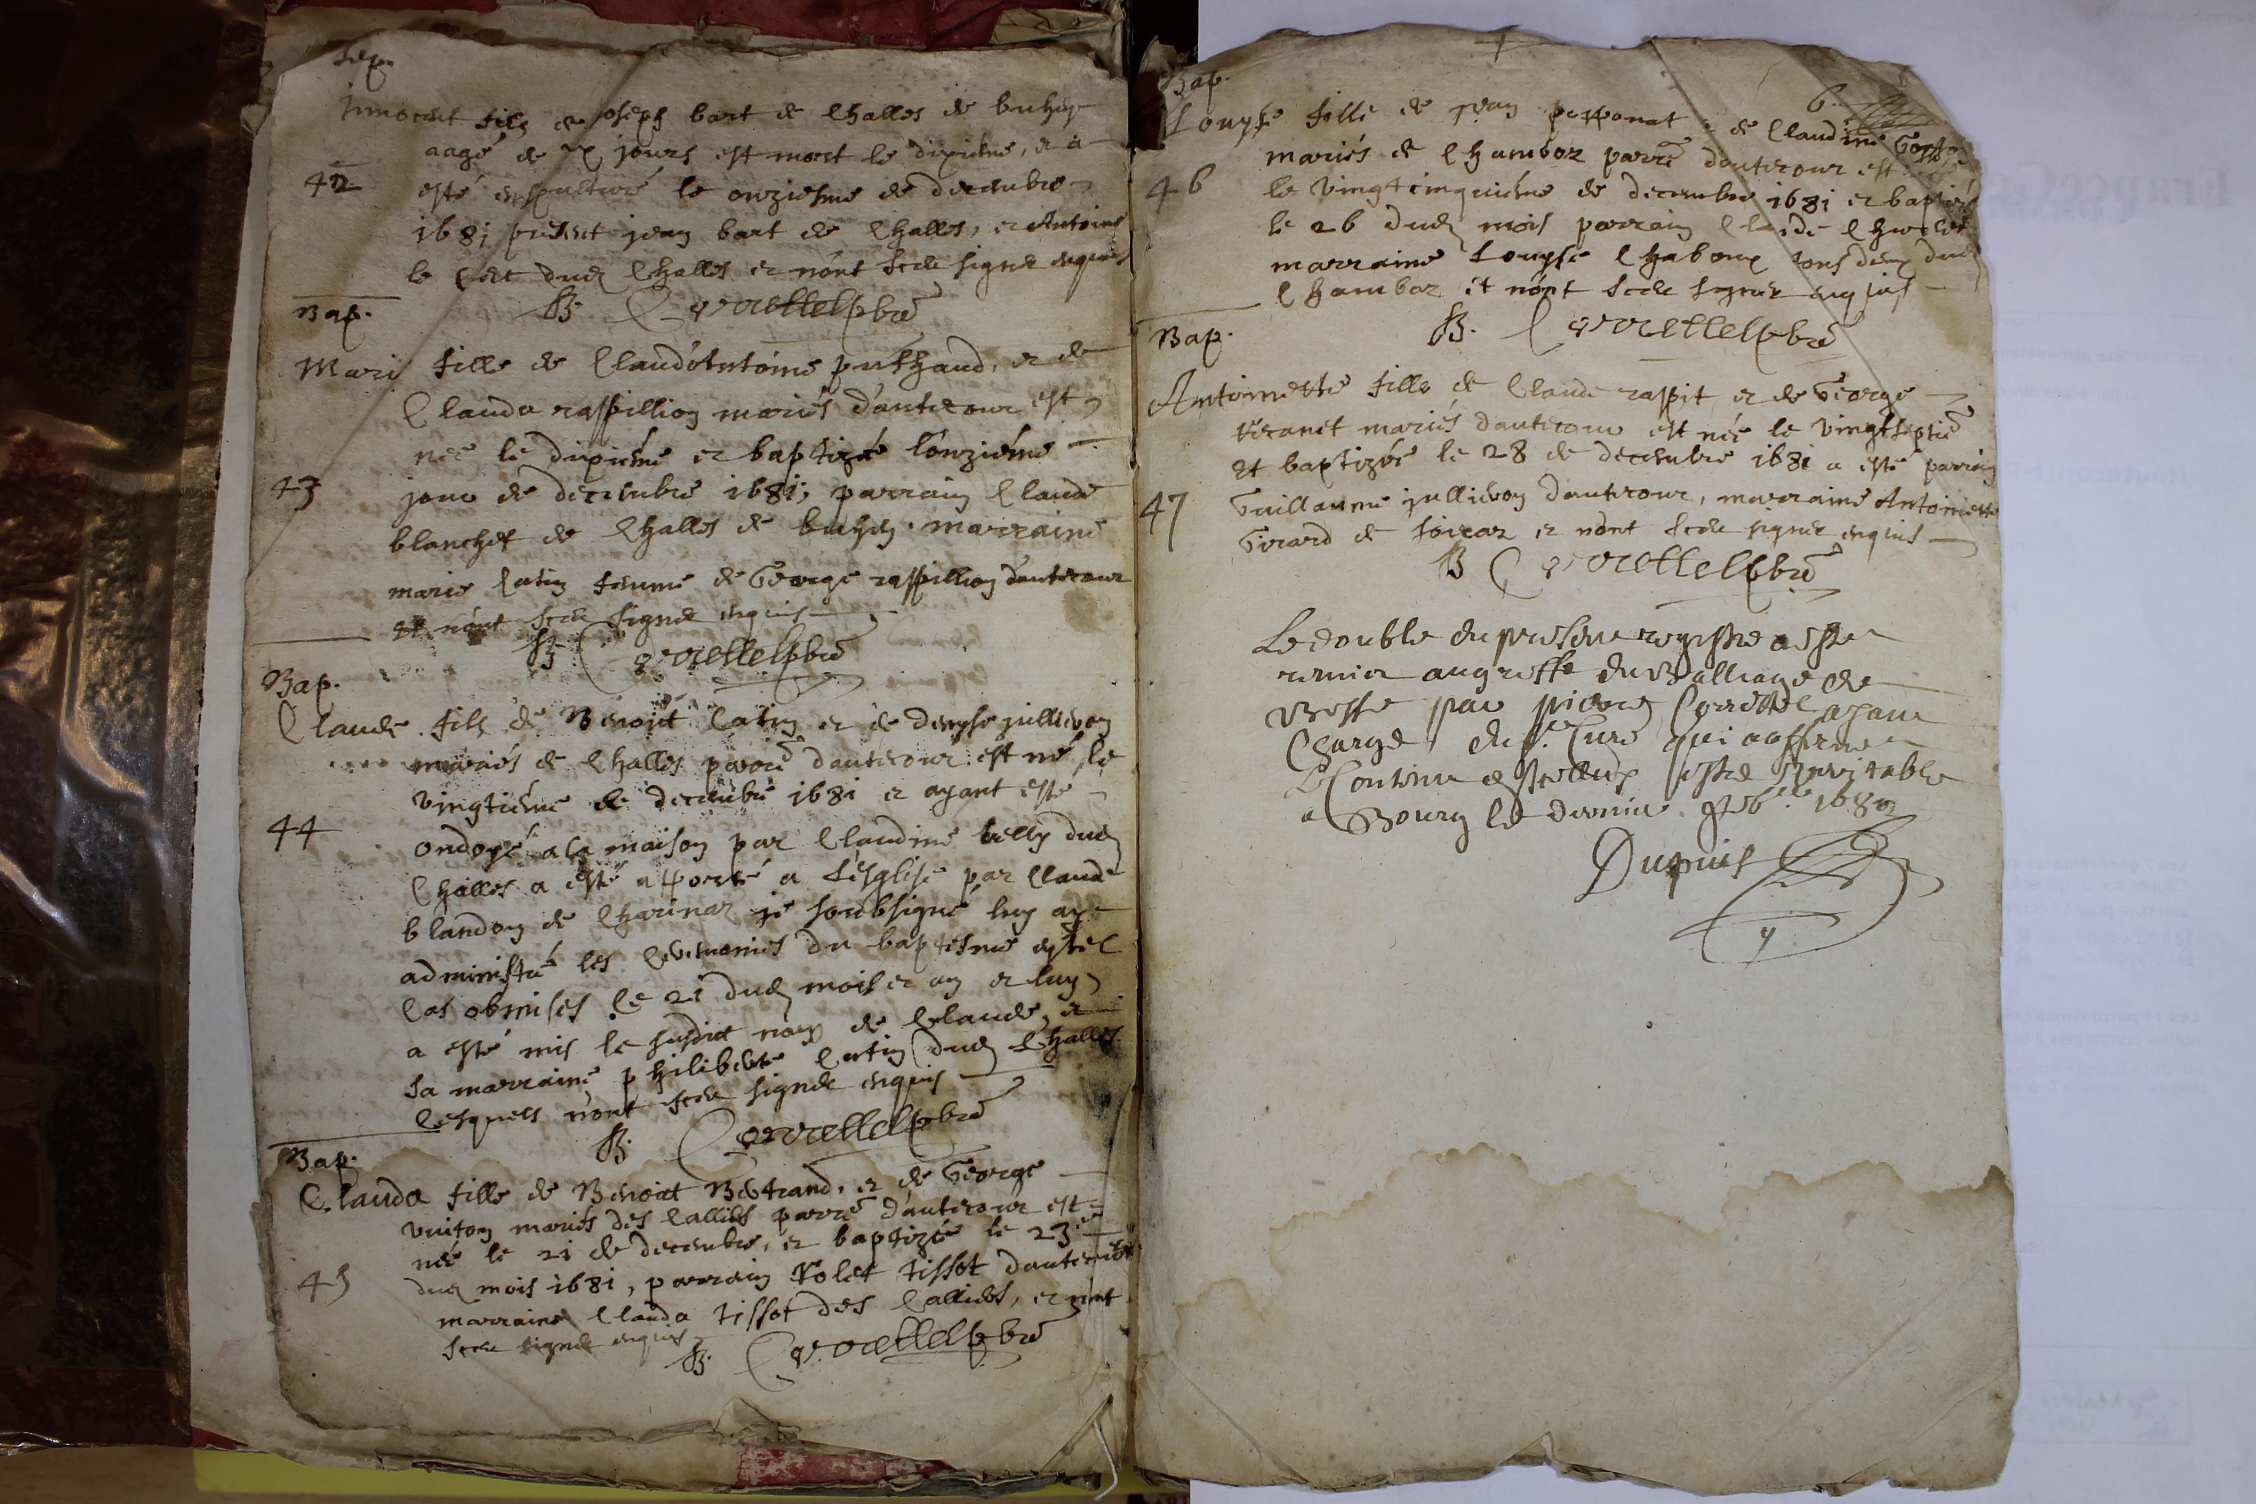 Sep.
Innocent fils de Joseph bart de Challes de buhey
aagé de x jours est mort le dixiesme, et a
42
esté ensepulturé le onziesme de decembre
1681 présent jean bart de Challes, et Antoine
dud Challes et n'ont sceu signer enquis
B. Correttel pbre
Bap.
Marie fille de Claud Antoine puthaud, et de
Clauda raspillion mariés d'autrecour est
née le dixiéme et baptizée l'onziéme
43
jour de decembre 1681, parrain Claude
blanchet de Challes de buhey. marraine
marie Catin femme de George raspillion d'autrecour
et n'ont sceu signer enquis
B. Correttel pbre
Bap.
Claude fils de Benoist Catin et de denyse jullieron
mariés de Challes parre d'autrecour est né le
vingtiéme de decembre 1681 et ayant esté
44
ondoyé a la maison par Claudine belly dud
Challes a esté apporté a l'esglise par Claude
blandon de Charinaz je soubsigné luy ay
administré les ceremonies du baptesme en tel
cas obmises le 21 dud mois et an et luy
a esté mis le susdict nom de Claude, et
sa marraine philiberte Catin dud Challes
lesquels n'ont sceu signer enquis
B. Correttel pbre
Bap.
Clauda fille de Benoist Bertrand, et de George
vuiton mariés des Calliets parre d'autrecour est
née le 21 de decembre, et baptizée le 23e
45
dud mois 1681, parrain Rolet tissot d'autrecour
marraine Clauda tissot des Calliets, et n'ont
sceu signer enquis
B. Correttel pbre
6.
Bap.
Louyse fille de jean perronat de Claudine
mariés de Chamboz parre d'autrecour est née
46
le vingtcinquiéme de decembre 1681 et baptizée
le 26 dud mois parrain Claude
marraine Louyse Chaboux tous deux dud
Chamboz et n'ont sceu signer enquis
B. Correttel pbre
Bap.
Antoinette fille de Claude raspit et de George
veranet mariés d'autrecour est née le vingtseptie
et baptizée le 28 de decembre 1681 a esté parrain
47
Guillaume jullieron d'autrecour, marraine Antoinette
Girard de soiraz et n'ont sceu signer enquis
B Correttel pbre
Le double du present registre a este
remis au greffe du Balliage de
Bresse par pierre Correttel ayant
Charge du Sr. Curé qui a affirmé
Le Contenu en Icelluy estre veritable
a Bourg le dernier 1682
Dupuis